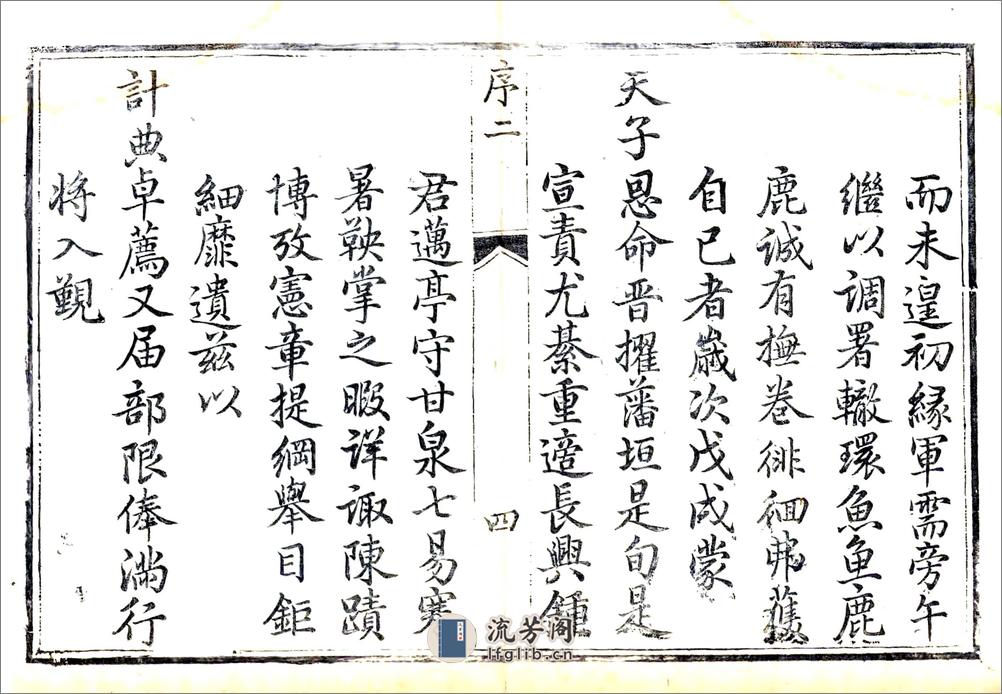 而未遑初緣軍需旁午
繼以調署轍環魚魚鹿
鹿誠有撫卷徘徊弗獲
自已者歲次戊戌蒙
天子恩命晉擢藩垣是旬是
宣責尤綦重適長興鍾
序二
四
君邁亭守甘泉七易寒
暑鞅掌之暇詳諏陳蹟
博攷憲章提綱舉目鉅
細靡遺茲以
計典卓薦又届部限俸滿行
將入覲
流芳阁
lfglib.cn